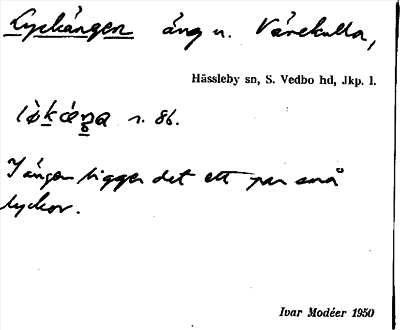 Lyckängen äng u. Vårekulla,
Hässleby sn, S. Vedbo hd, Jkp. l.
r. 86.
I ängen ligger det ett par små
lyckor.
Ivar Modéer 1950